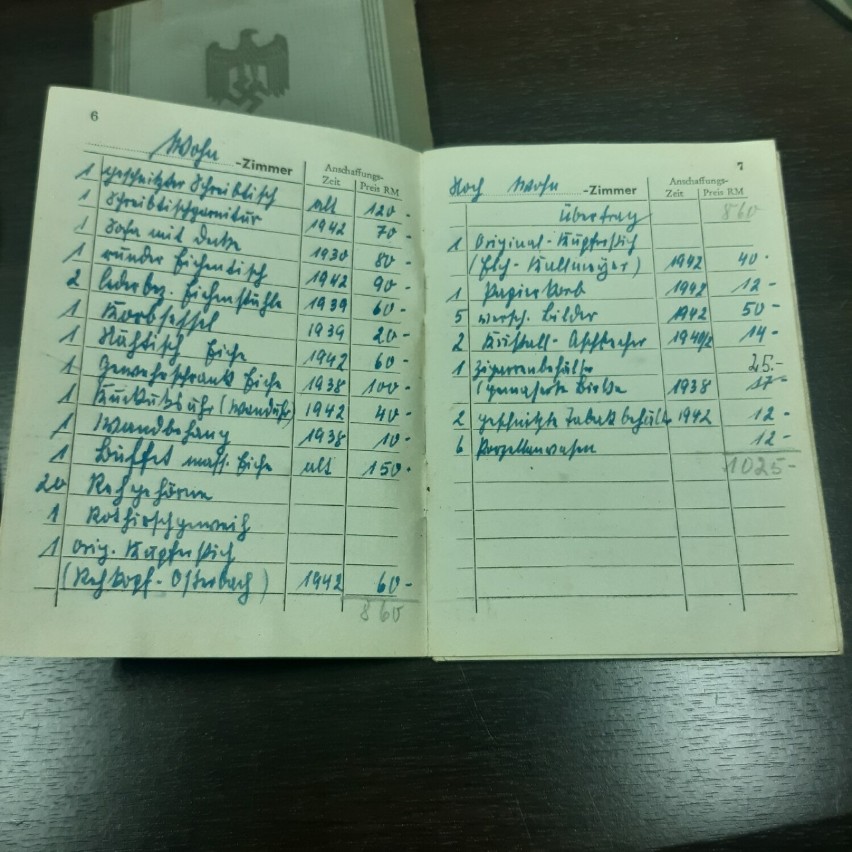 6
Wohn -Zimmer
Anschaffungs-
Zeit Preis RM
1 geschnitzter Schreibtisch alt 120.-
1 Schreibtischgarnitur 1942 70.-
1 Sofa mit Decke 1930 80-
1 runder Eichentisch 1942 90-
2 lederbez. Eichenstühle 1939 60-
1 Korbsessel 1939 20-
1 Nähtisch Eiche 1942 60-
1 Gewehrschrank Eiche 1938 100-
1 Kuckuksuhr (Wanduhr) 1942 40-
1 Wandbehang 1938 10-
1 Büffet mass. Eiche alt 150-
20 Rehgehörne
1 Rothirschgeweih
1 orig. Kupferstich
(Rehkopf- Osterbach) 1942 60-
860
7
Noch Wohn -Zimmer
Anschaffungs-
Zeit Preis RM
Übertrag 860
1 Original-Kupferstich
(Elch- Kallmeyer) 1942 40-
1 Papierkorb 1942 12-
5 versch. Bilder 1942 50-
2 Kristall-Aschbecher 1940/2 14-
1 Zigarrenbehälter 25.-
(gemaserte Birke 1938 17-
2 geschnitzte Tabakbehält. 1942 12-
6 Porzellanvasen 12-
1025-